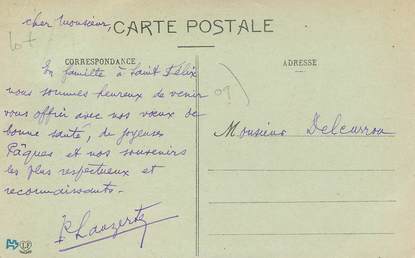 cher Monsieur,
CARTE POSTALE
Lot
CORRESPONDANCE
ADRESSE
En famille à Saint Félix
nous sommes heureux de venir
vous offrir avec nos vœux de
bonne santé, de joyeuses
Pâques et nos souvenirs
les plus respectueux et
reconnaissants.
Monsieur Delcurrou